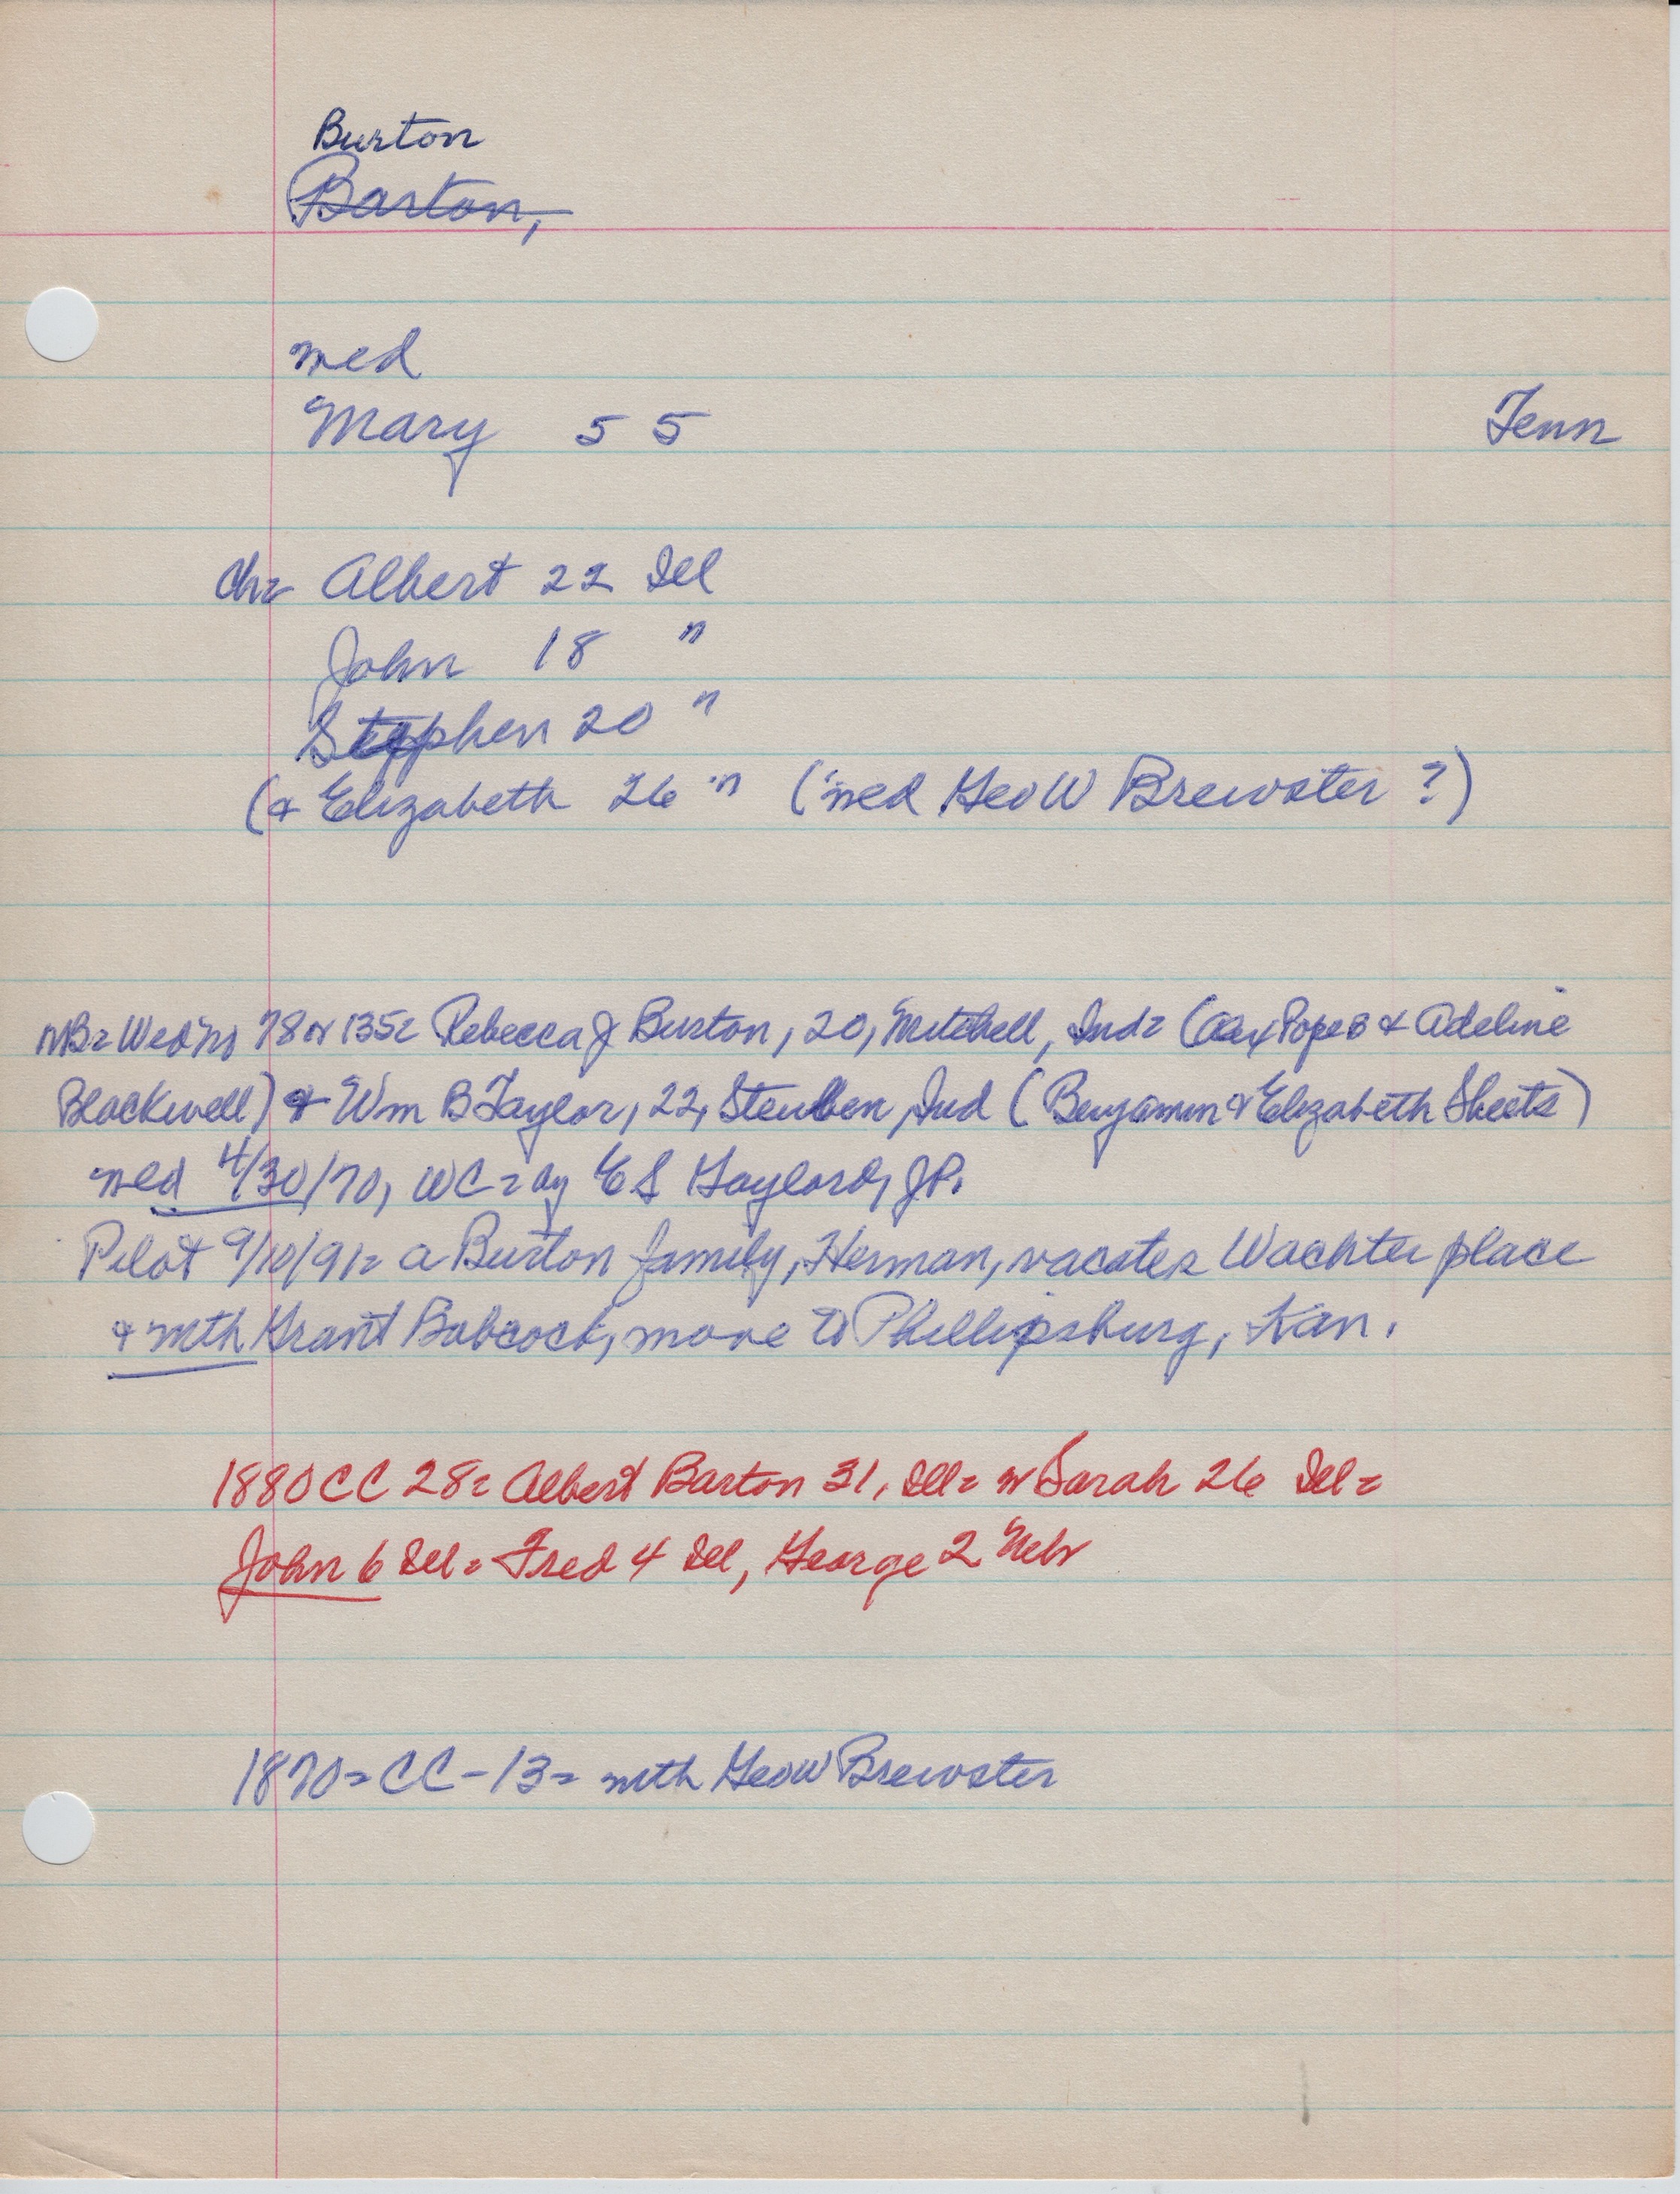 Burton
Barton,
med
Mary 55 Tenn
ch= Albert 22 Ill
John 18 "
Stephen 20 "
(& Elizabeth 26 " (med Geo W Brewster ?)
NB= Wed'ng 78 or 135= Rebecca J Burton, 20, Mitchell, Ind= (Pope B & Adeline
Blackwell) & Wm B Taylor, 22, Steuben, Ind (Benjamin & Elizabeth Sheets)
med 4/30/70, WC= by E S Gaylord, JP.
Pilot 9/10/91= a Burton family, Herman, vacates Wachter place
& with Grant Babcock, move to Phillipsburg, Kan.
1880 CC 28= Albert Barton 31, Ill= w Sarah 26 Ill=
John 6 Ill= Fred 4 Ill, George 2 Neb
1870= CC-13= with Geo W Brewster